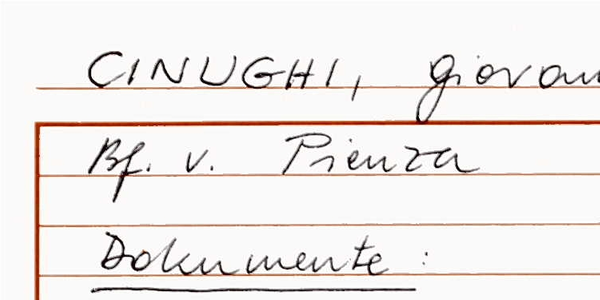 CINUGHI, Giovan
Bf. v. Pienza
Dokumente :